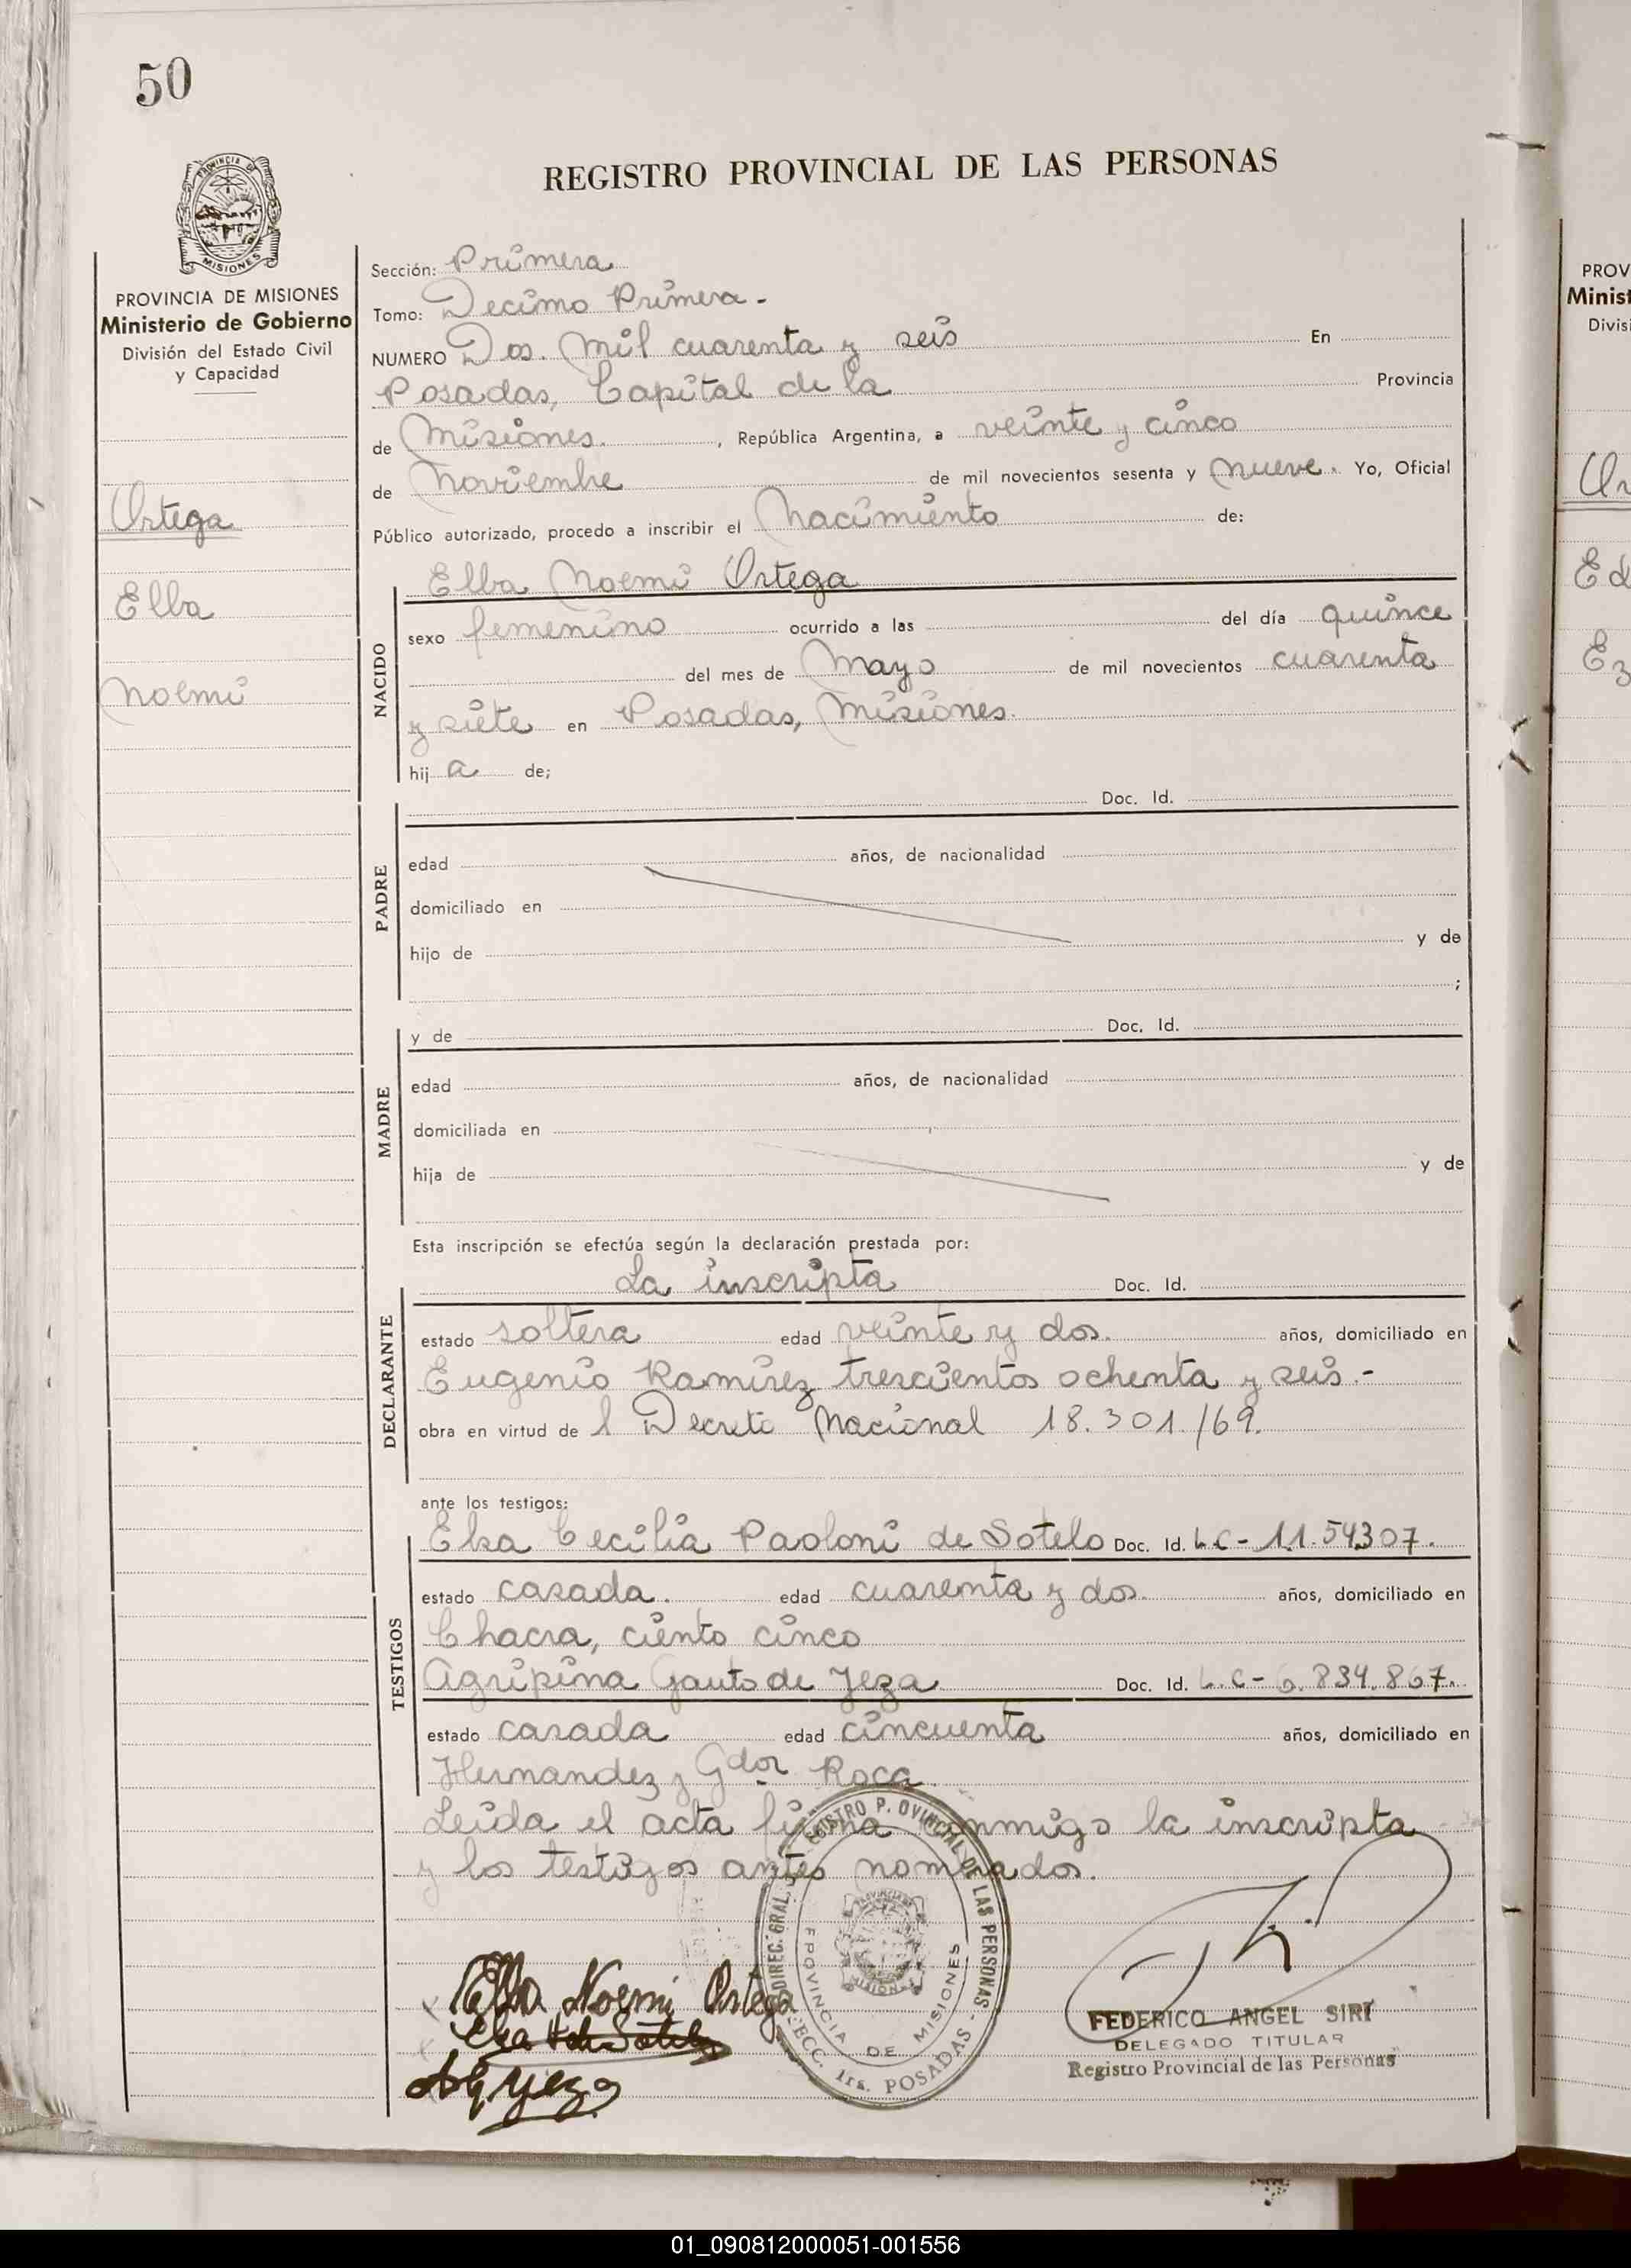 50
REGISTRO PROVINCIAL DE LAS PERSONAS
PROVINCIA DE MISIONES
MISIONES
PROVINCIA DE MISIONES
Ministerio de Gobierno
División del Estado Civil
y Capacidad
Ortega
Elba
Noemí
Sección: Primera
Tomo: Decimo Primera -
NUMERO Dos. Mil cuarenta y seis En
Posadas, Capital de la Provincia
de Misiones. , República Argentina, a veinte y cinco
de Noviembre de mil novecientos sesenta y nueve. Yo, Oficial
Público autorizado, procedo a inscribir el Nacimiento de:
Elba Noemí Ortega
NACIDO
sexo femenino ocurrido a las del día quince
del mes de Mayo de mil novecientos cuarenta
y siete en Posadas, Misiones.
hij a de;
Doc. Id.
PADRE
edad años, de nacionalidad
domiciliado en
hijo de y de
;
y de Doc. Id.
MADRE
edad años, de nacionalidad
domiciliada en
hija de y de
Esta inscripción se efectúa según la declaración prestada por:
La inscripta Doc. Id.
DECLARANTE
estado soltera edad veinte y dos. años, domiciliado en
Eugenio Ramirez trescientos ochenta y seis.-
obra en virtud de l Decreto Nacional 18.301./69.
ante los testigos:
Elsa Cecilia Paoloni de Sotelo Doc. Id. L.C - 11.54307.
TESTIGOS
estado casada. edad cuarenta y dos. años, domiciliado en
Chacra, ciento cinco
Agripina Gauto de Yeza Doc. Id. L.C - 6.834.867.
estado casada edad cincuenta años, domiciliado en
Hernandez y Gdor Roca
Leída el acta firma conmigo la inscripta
y los testigos antes nombrados.
DIREC. GRAL. REGISTRO P. OVINCIAL DE LAS PERSONAS -
PROVINCIA DE MISIONES
SECC. 1ra. POSADAS
Elba Noemi Ortega
FEDERICO ANGEL SIRI
DELEGADO TITULAR
Registro Provincial de las Personas
PROV
Minist
Divisi
01_090812000051-001556